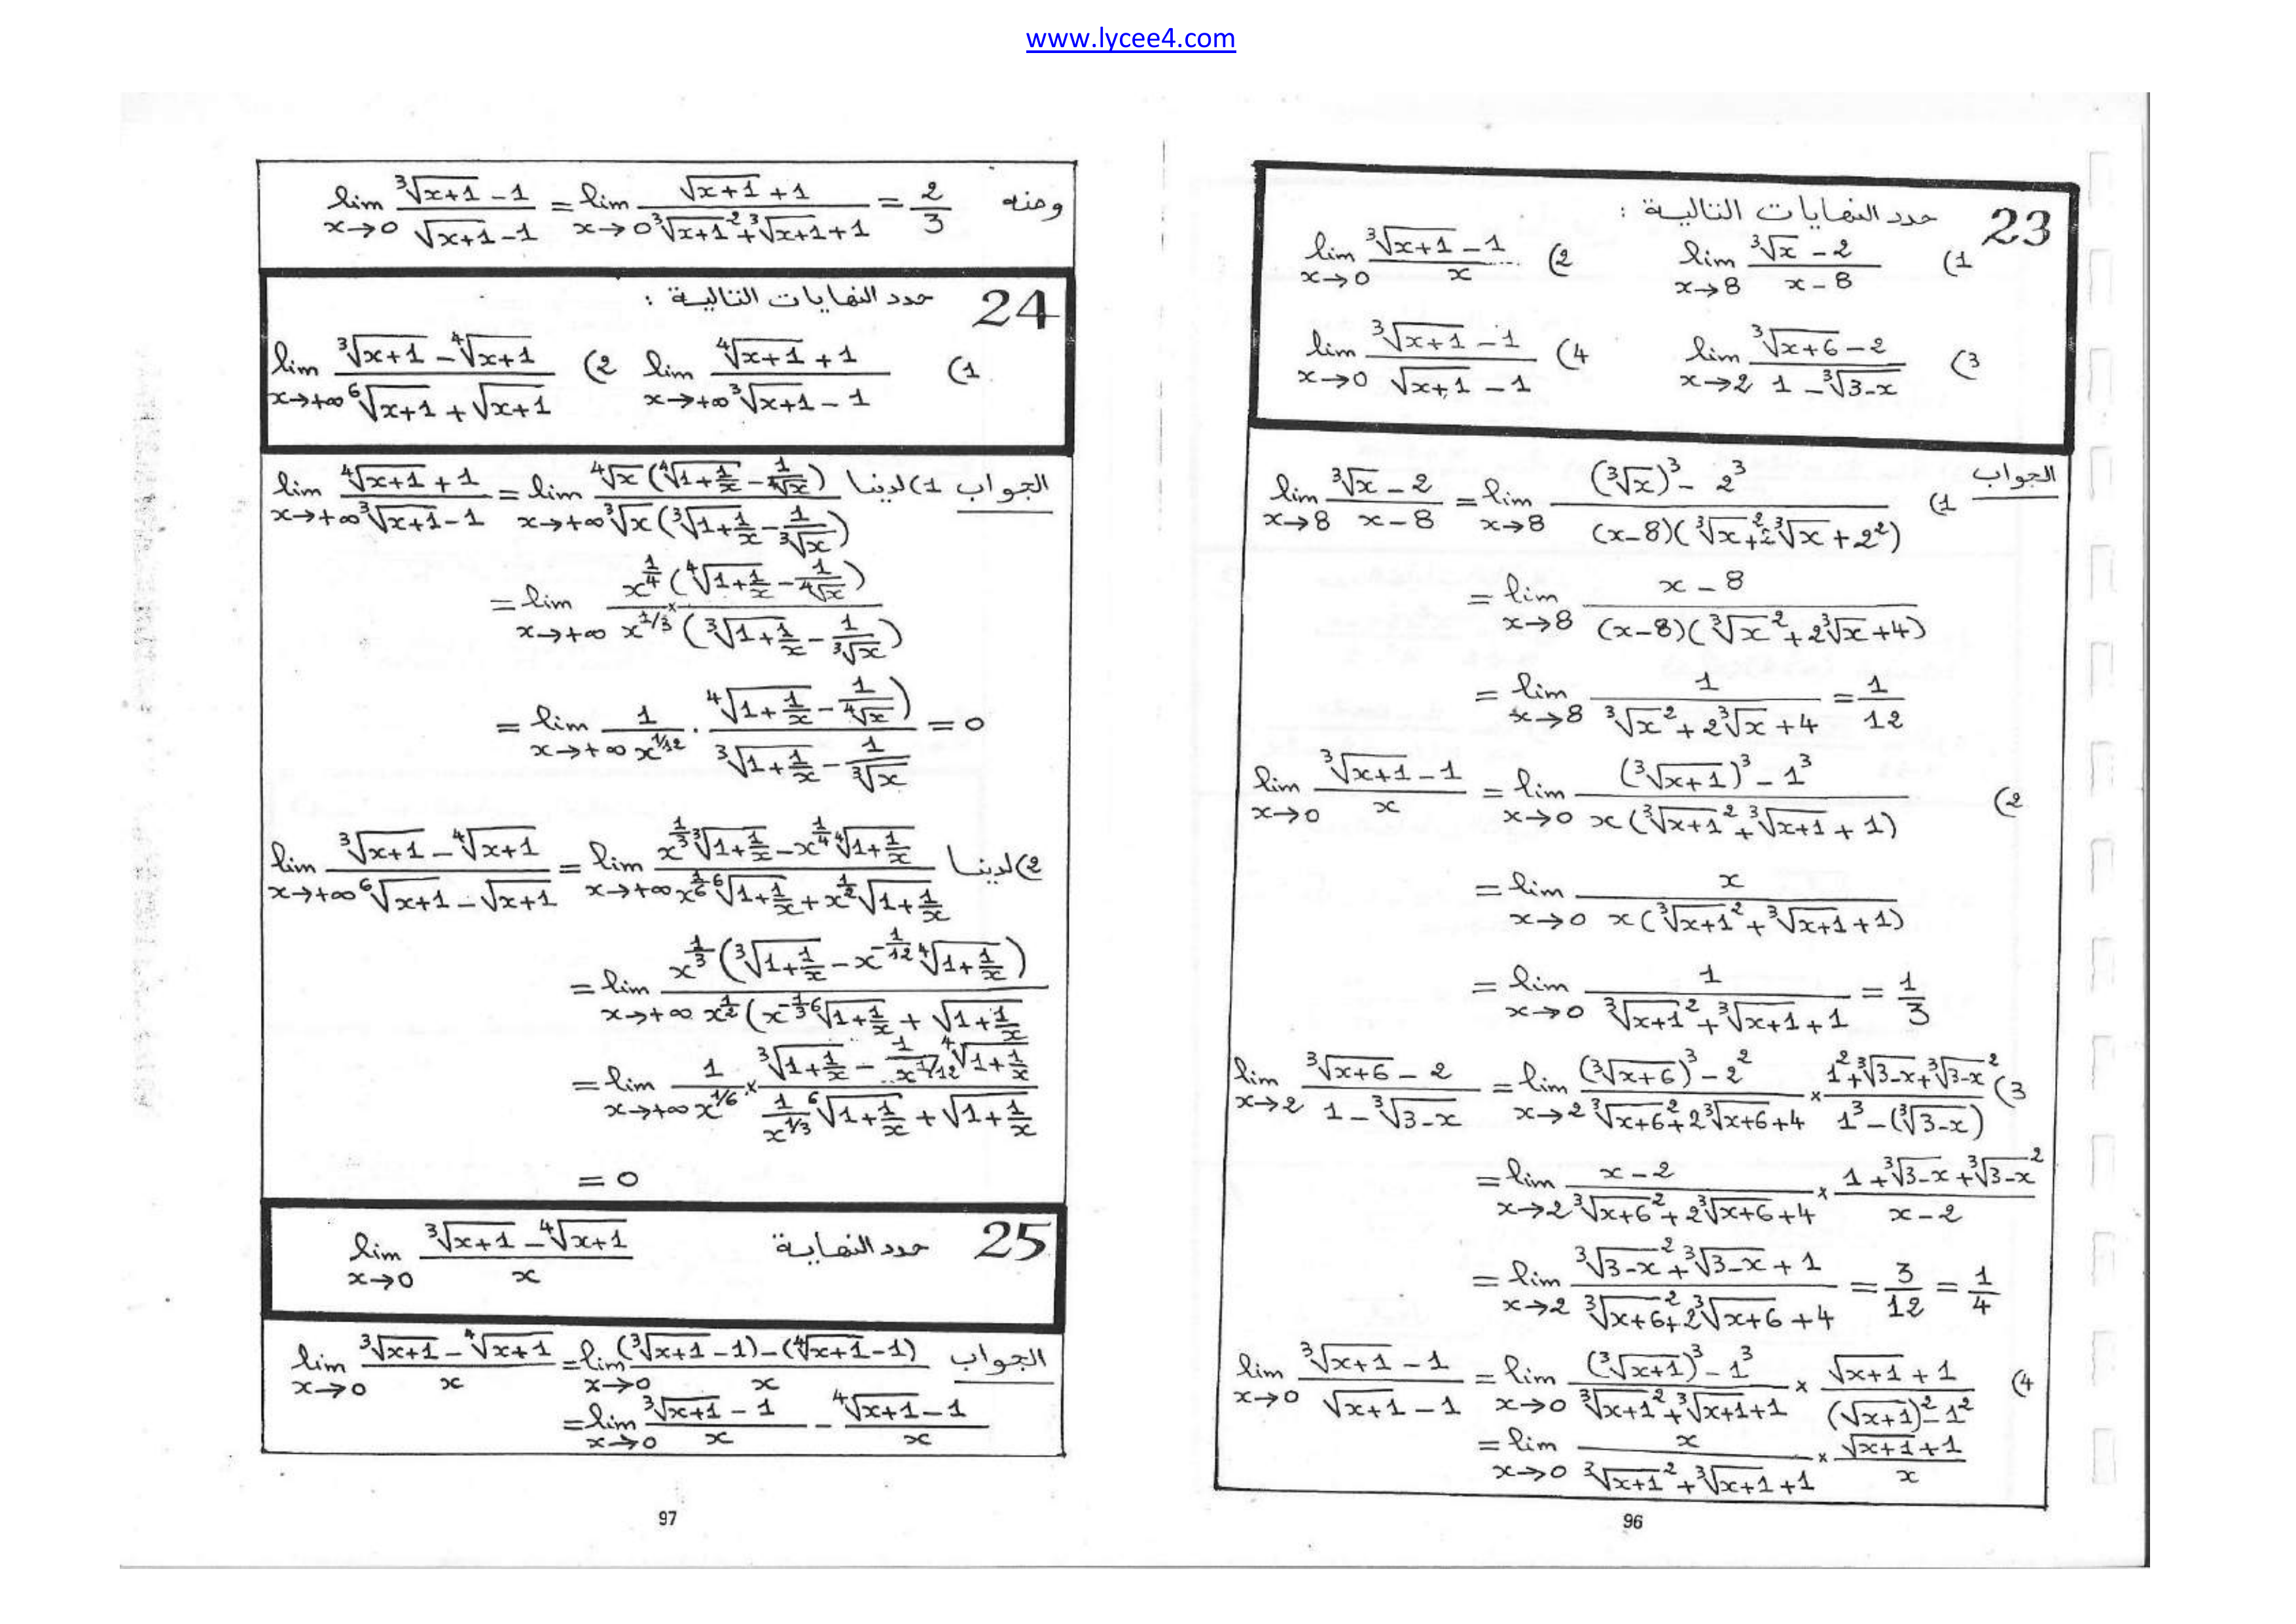 www.lycee4.com
23 حدد النهايات التالية :
1) lim x→8 (∛x - 2)/(x - 8)   2) lim x→0 (∛(x+1) - 1)/x
3) lim x→2 (∛(x+6) - 2)/(1 - ∛(3-x))   4) lim x→0 (∛(x+1) - 1)/(√(x+1) - 1)
الجواب 1) lim x→8 (∛x - 2)/(x - 8) = lim x→8 ((∛x)³ - 2³)/((x-8)(∛x² + 2∛x + 2²))
= lim x→8 (x - 8)/((x-8)(∛x² + 2∛x + 4))
= lim x→8 1/(∛x² + 2∛x + 4) = 1/12
2) lim x→0 (∛(x+1) - 1)/x = lim x→0 ((∛(x+1))³ - 1³)/(x(∛(x+1)² + ∛(x+1) + 1))
= lim x→0 x/(x(∛(x+1)² + ∛(x+1) + 1))
= lim x→0 1/(∛(x+1)² + ∛(x+1) + 1) = 1/3
3) lim x→2 (∛(x+6) - 2)/(1 - ∛(3-x)) = lim x→2 ((∛(x+6))³ - 2²)/(∛(x+6)² + 2∛(x+6) + 4) × (1² + ∛(3-x) + ∛(3-x)²)/(1³ - (∛(3-x)))
= lim x→2 (x - 2)/(∛(x+6)² + 2∛(x+6) + 4) × (1 + ∛(3-x) + ∛(3-x)²)/(x - 2)
= lim x→2 (∛(3-x)² + ∛(3-x) + 1)/(∛(x+6)² + 2∛(x+6) + 4) = 3/12 = 1/4
4) lim x→0 (∛(x+1) - 1)/(√(x+1) - 1) = lim x→0 ((∛(x+1))³ - 1³)/(∛(x+1)² + ∛(x+1) + 1) × (√(x+1) + 1)/((√(x+1))² - 1²)
= lim x→0 x/(∛(x+1)² + ∛(x+1) + 1) × (√(x+1) + 1)/x
96
ومنه lim x→0 (∛(x+1) - 1)/(√(x+1) - 1) = lim x→0 (√(x+1) + 1)/(∛(x+1)² + ∛(x+1) + 1) = 2/3
24 حدد النهايات التالية :
1) lim x→+∞ (∜(x+1) + 1)/(∛(x+1) - 1)   2) lim x→+∞ (∛(x+1) - ∜(x+1))/(⁶√(x+1) + √(x+1))
الجواب 1) لدينا lim x→+∞ (∜(x+1) + 1)/(∛(x+1) - 1) = lim x→+∞ ∜x(∜(1+1/x) - 1/∜x)/(∛x(∛(1+1/x) - 1/∛x))
= lim x→+∞ x^(1/4)/x^(1/3) × (∜(1+1/x) - 1/∜x)/(∛(1+1/x) - 1/∛x)
= lim x→+∞ 1/x^(1/12) · (∜(1+1/x) - 1/∜x)/(∛(1+1/x) - 1/∛x) = 0
2) لدينا lim x→+∞ (∛(x+1) - ∜(x+1))/(⁶√(x+1) - √(x+1)) = lim x→+∞ (x^(1/3) ∛(1+1/x) - x^(1/4) ∜(1+1/x))/(x^(1/6) ⁶√(1+1/x) + x^(1/2) √(1+1/x))
= lim x→+∞ x^(1/3)(∛(1+1/x) - x^(-1/12) ∜(1+1/x))/(x^(1/2)(x^(-1/3) ⁶√(1+1/x) + √(1+1/x)
= lim x→+∞ 1/x^(1/6) × (∛(1+1/x) - 1/x^(1/12) ∜(1+1/x))/(1/x^(1/3) ⁶√(1+1/x) + √(1+1/x))
= 0
25 حدد النهاية lim x→0 (∛(x+1) - ∜(x+1))/x
الجواب lim x→0 (∛(x+1) - ∜(x+1))/x = lim x→0 ((∛(x+1) - 1) - (∜(x+1) - 1))/x
= lim x→0 (∛(x+1) - 1)/x - (∜(x+1) - 1)/x
97